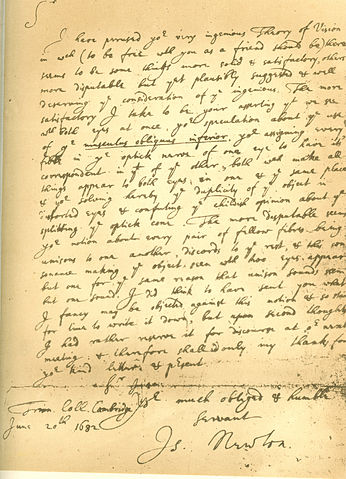 Sr
I have perused yor very ingenious Theory of Vision
in wch (to be free with you as a friend should be) there
seems to be some things more solid & satisfactory, others
more disputable but yet plausibly suggested & well
deserving ye consideration of ye ingenious. The more
satisfactory I take to be your asserting yt we see
wth both eyes at once, yor speculation about ye use
of ye musculus obliquus inferior, yor assigning every
fibre in ye optick nerve of one eye to have its
correspondent in yt of ye other, both wch make all
things appear to both eyes in one & ye same place
& yor solving hereby ye duplicity of ye object in
distorted eyes & confuting ye childish opinion about ye
splitting ye optick cone. The more disputable seems
yor notion about every pair of fellow fibres being
unisons to one another, discords to ye rest, & this con-
sonance making ye object seen wth two eyes appear
but one for ye same reason that unison sounds seem
but one sound. I did think to have sent you what
I fancy may be objected against this notion & so staid
for time to write it down, but upon second thoughts
I had rather reserve it for discourse at or next
meeting: & therefore shall add only my thanks for
yor kind letter & present.
Sr I am
Trin. Coll. Cambridge Yor much obliged & humble
June 20th 1682 Servant
Is. Newton.